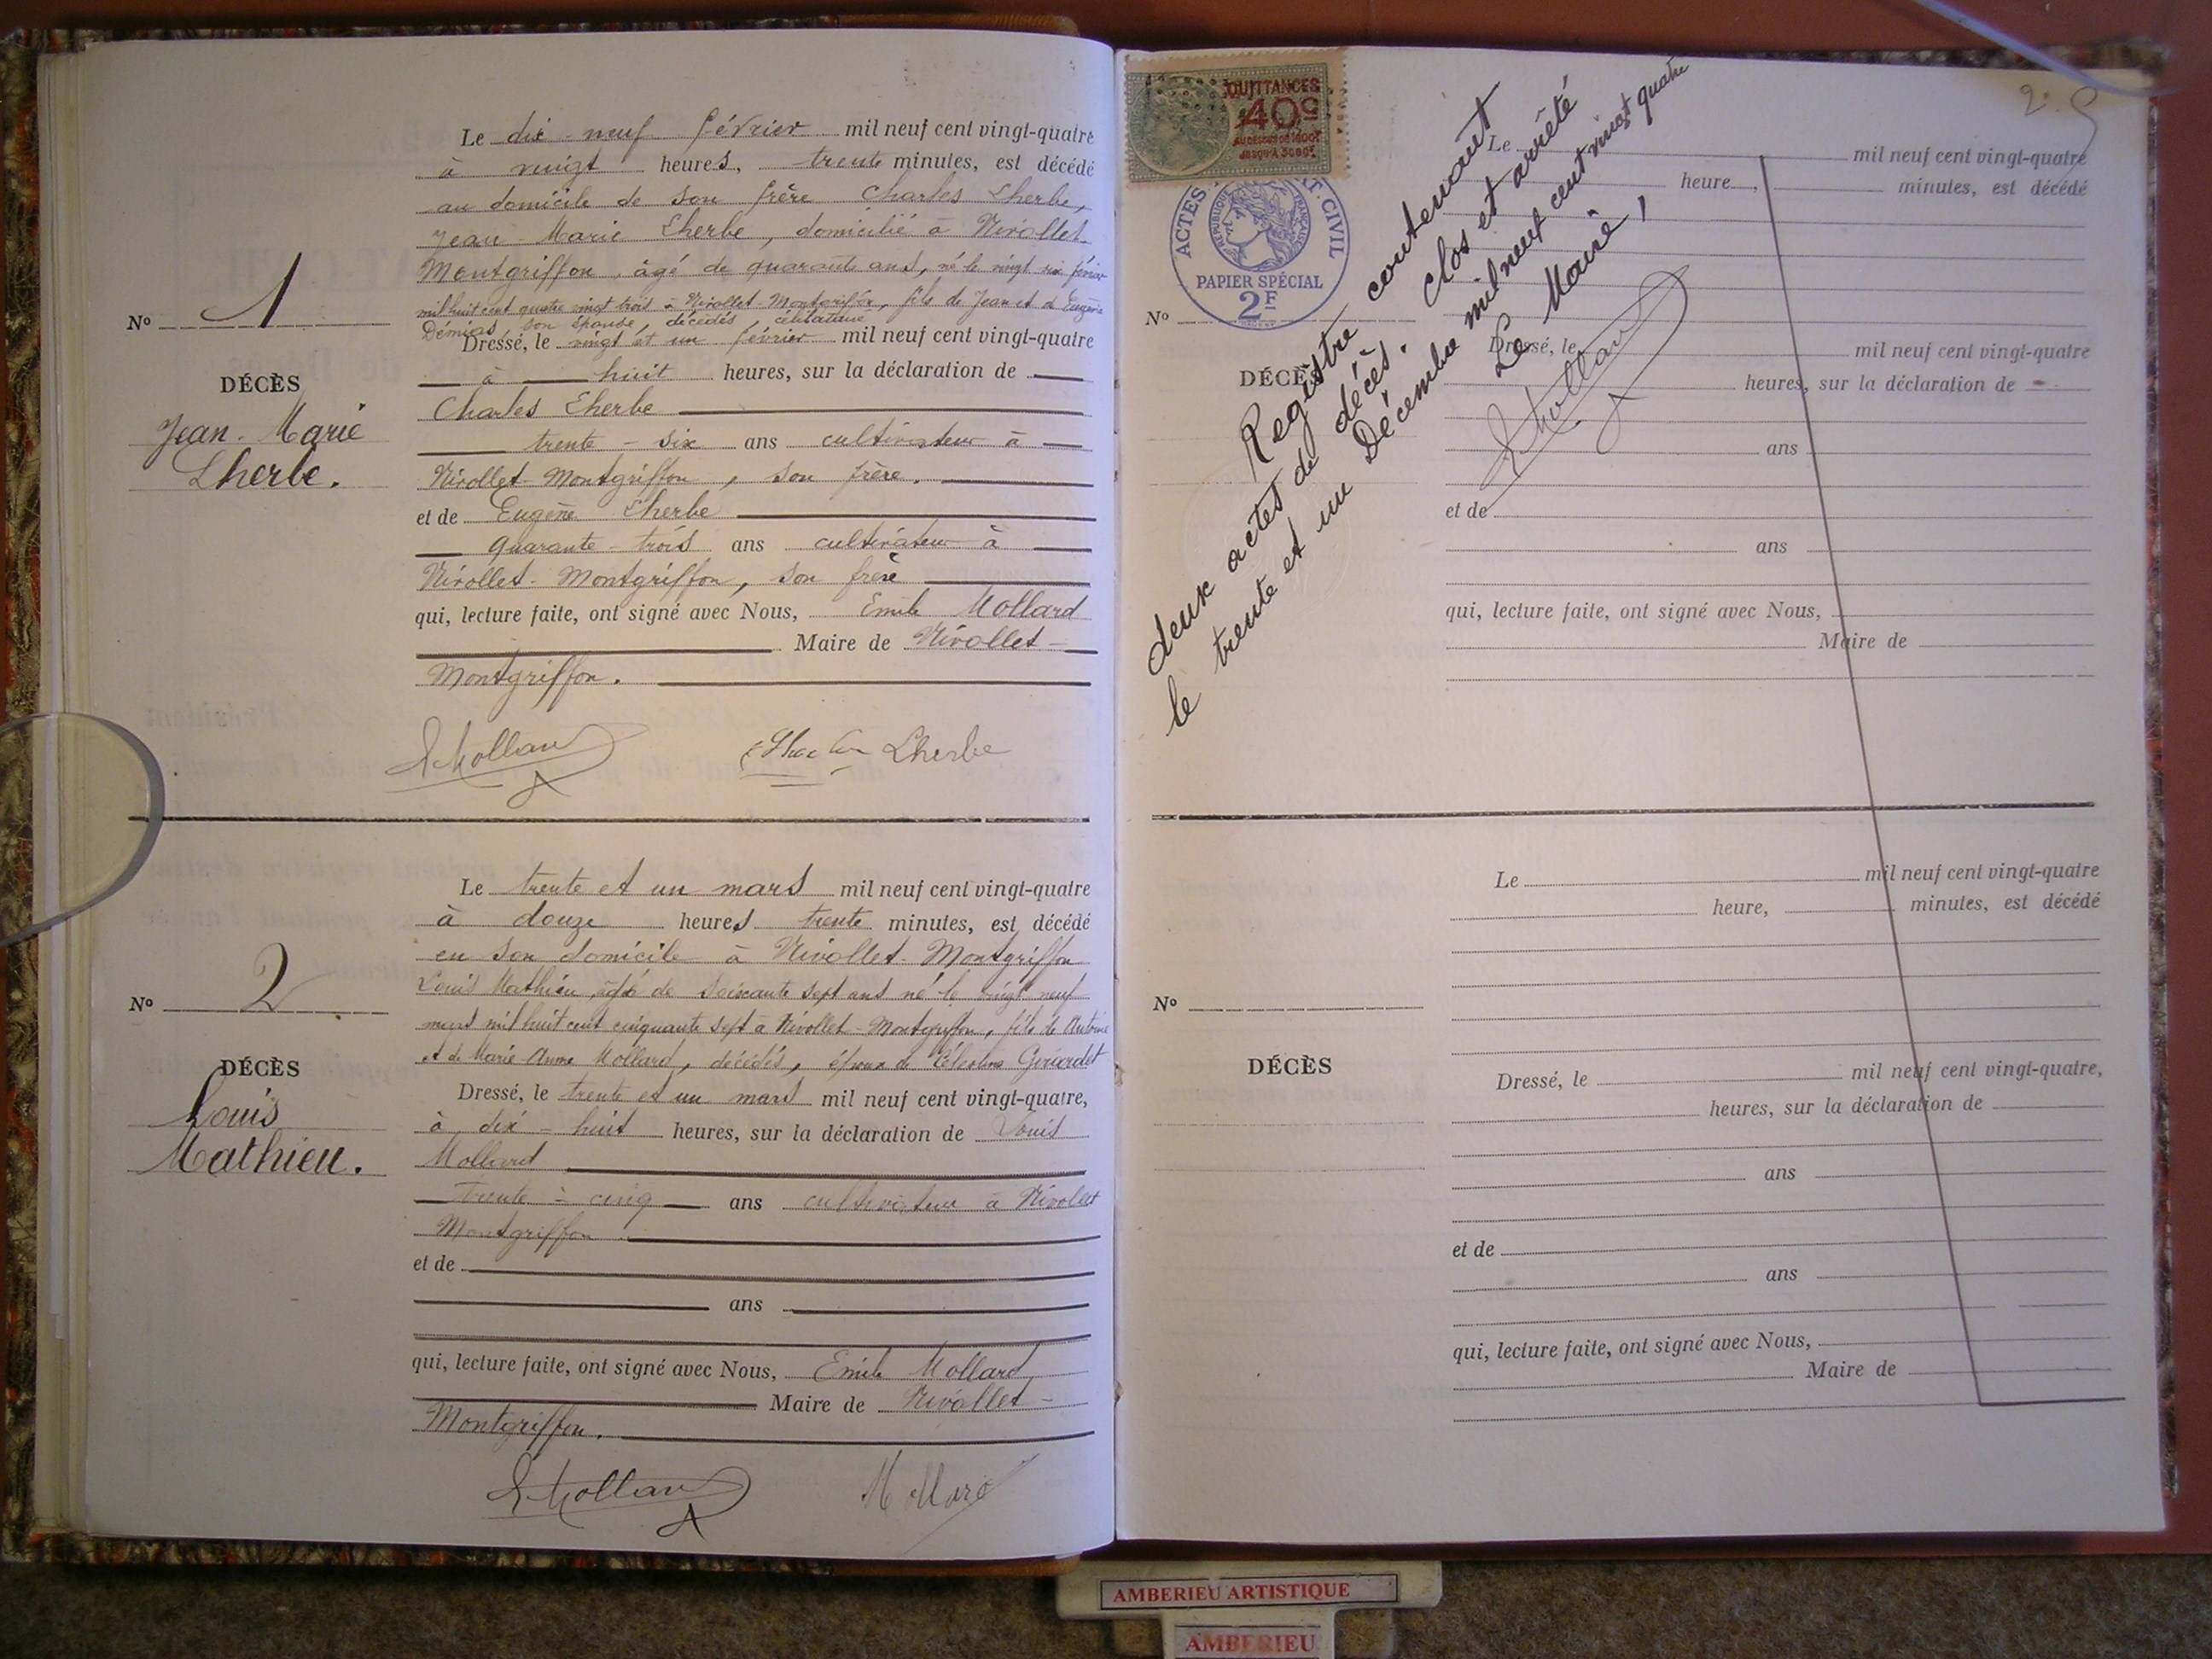 Le dix-neuf février mil neuf cent vingt-quatre
à vingt heures, trente minutes, est décédé
au domicile de son frère Charles Lherbe,
Jean-Marie Lherbe, domicilié à Nivollet-
Montgriffon, âgé de quarante ans, né le vingt six février
mil huit cent quatre vingt trois à Nivollet-Montgriffon, fils de Jean et d'Eugénie
Démias, son épouse, décédés, célibataire
Nº 1
Dressé, le vingt et un février mil neuf cent vingt-quatre
à huit heures, sur la déclaration de
DÉCÈS
Jean-Marie
Lherbe.
Charles Lherbe
trente-six ans cultivateur à
Nivollet-Montgriffon, son frère.
et de Eugène Lherbe
quarante-trois ans cultivateur à
Nivollet-Montgriffon, son frère
qui, lecture faite, ont signé avec Nous, Emile Mollard
Maire de Nivollet-
Montgriffon.
EMollard Lherbe
Le trente et un mars mil neuf cent vingt-quatre
à douze heures trente minutes, est décédé
en son domicile à Nivollet-Montgriffon
Louis Mathieu, âgé de soixante sept ans né le vingt neuf
mars mil huit cent cinquante sept à Nivollet-Montgriffon, fils de Antoine
et de Marie-Anne Mollard, décédés, époux de Célestine
Nº 2
DÉCÈS
Louis
Mathieu.
Dressé, le trente et un mars mil neuf cent vingt-quatre,
à dix-huit heures, sur la déclaration de Louis
Mollard
Trente-cinq ans cultivateur à Nivollet
Montgriffon
et de
ans
qui, lecture faite, ont signé avec Nous, Emile Mollard
Maire de Nivollet-
Montgriffon.
EMollard Mollard
2
QUITTANCES
40c
AU DESSUS DE 1000F
JUSQU'A 3000F
ACTES CIVIL
REPUBLIQUE FRANÇAISE
PAPIER SPÉCIAL
2F
Registre contenant
deux actes de décès. Clos et arrêté
le trente et un Décembre mil neuf cent vingt quatre
Le Maire,
EMollard
Le mil neuf cent vingt-quatre
heure, minutes, est décédé
Nº
DÉCÈS
Dressé, le mil neuf cent vingt-quatre
heures, sur la déclaration de
ans
et de
ans
qui, lecture faite, ont signé avec Nous,
Maire de
Le mil neuf cent vingt-quatre
heure, minutes, est décédé
Nº
DÉCÈS
Dressé, le mil neuf cent vingt-quatre,
heures, sur la déclaration de
ans
et de
ans
qui, lecture faite, ont signé avec Nous,
Maire de
AMBERIEU ARTISTIQUE
AMBERIEU